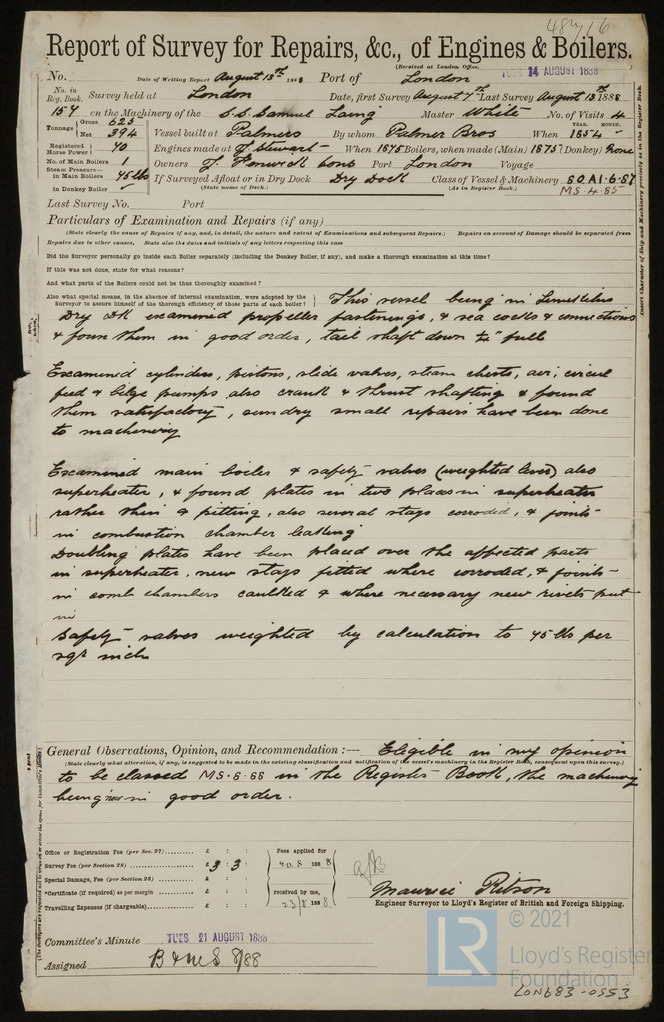 48716
Report of Survey for Repairs, &c., of Engines & Boilers.
(Received at London Office,
TUES 14 AUGUST 1888
No. Date of Writing Report August 13th 1888 Port of London
No. in Reg. Book. Survey held at London Date, first Survey August 7th Last Survey August 13th 1888
157 on the Machinery of the S.S. Samuel Laing Master White No. of Visits 4
Tonnage Gross 623 Net 394 Vessel built at Palmers By whom Palmer Bros When 1854
YEAR. MONTH.
Registered Horse Power 90 Engines made at J. Stewart When 1875 Boilers, when made (Main) 1875 (Donkey) None
No. of Main Boilers 1 Owners J. Fenwick Port London Voyage
Steam Pressure in Main Boilers 45 lbs If Surveyed Afloat or in Dry Dock Dry Dock Class of Vessel & Machinery
in Donkey Boiler (State name of Dock.) (As in Register Book.) MS. 4. 85
Last Survey No. Port
Particulars of Examination and Repairs (if any)
(State clearly the cause of Repairs if any, and, in detail, the nature and extent of Examinations and subsequent Repairs.) Repairs on account of Damage should be separated from
Repairs due to other causes. State also the dates and initials of any letters respecting this case
Did the Surveyor personally go inside each Boiler separately (including the Donkey Boiler, if any), and make a thorough examination at this time?
If this was not done, state for what reasons?
And what parts of the Boilers could not be thus thoroughly examined?
Also what special means, in the absence of internal examination, were adopted by the
Surveyor to assure himself of the thorough efficiency of those parts of each boiler?
This vessel being in Limekilns
Dry Dk examined propeller fastenings, & sea cocks & connections
& foun them in good order, tail shaft down full
Examined cylinders, pistons, slide valves, steam chests, air, circul
feed & bilge pumps also crank & thrust shafting & found
them satisfactory, sundry small repairs have been done
to machinery
Examined main boiler & safety valves (weighted level) also
superheater, & found plates in two places in superheater
rather thin & pitting, also several stays corroded, & joints
in combustion chamber leaking
Doubling plates have been placed over the affected parts
in superheater, new stays fitted where corroded, & joints
in comb chambers caulked & where necessary new rivets put
in
Safety valves weighted by calculation to 45 lbs per
sqr inch
General Observations, Opinion, and Recommendation :— Eligible in my opinion
(State clearly what alteration, if any, is suggested to be made in the existing classification and notification of the vessel's machinery in the Register Book, consequent upon this survey.)
to be classed MS. 8. 88 in the Register Book, the machinery
being now in good order.
Office or Registration Fee (per Sec. 27) £ : :
Survey Fee (per Section 28) £ 3 : 3 :
Special Damage, Fee (per Section 28) £ : :
*Certificate (if required) as per margin : :
Travelling Expenses (if chargeable) £ : :
Fees applied for
1888
received by me,
23/8 1888
Maurice Ritson
Engineer Surveyor to Lloyd's Register of British and Foreign Shipping.
Committee's Minute TUES 21 AUGUST 1888
Assigned B & MS 8/88
Insert Character of Ship and Machinery precisely as in the Register Book.
LR
© 2021
Lloyd's Register
Foundation
LON683-0553